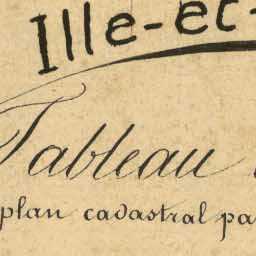 Ille-et-
Tableau
plan cadastral pa